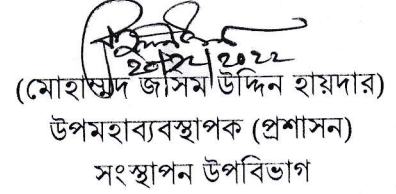 ২০/১২/২০২২
(মোহাম্মদ জসিম উদ্দিন হায়দার)
উপমহাব্যবস্থাপক (প্রশাসন)
সংস্থাপন উপবিভাগ